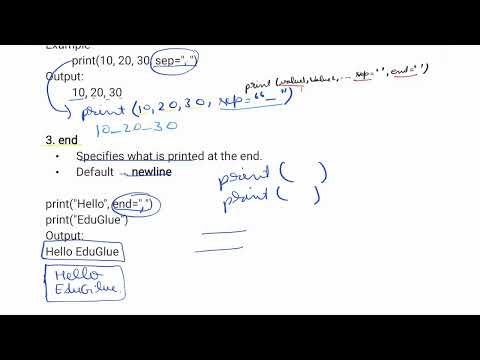 Example
print(10, 20, 30, sep=", ")
Output:
10, 20, 30
print (value, value, ... sep=" ", end=" ")
print (10, 20, 30, sep="_")
10_20_30
3. end
• Specifies what is printed at the end.
• Default newline
print ( )
print ( )
print("Hello", end=",")
print("EduGlue")
Output:
Hello EduGlue
Hello
EduGlue.